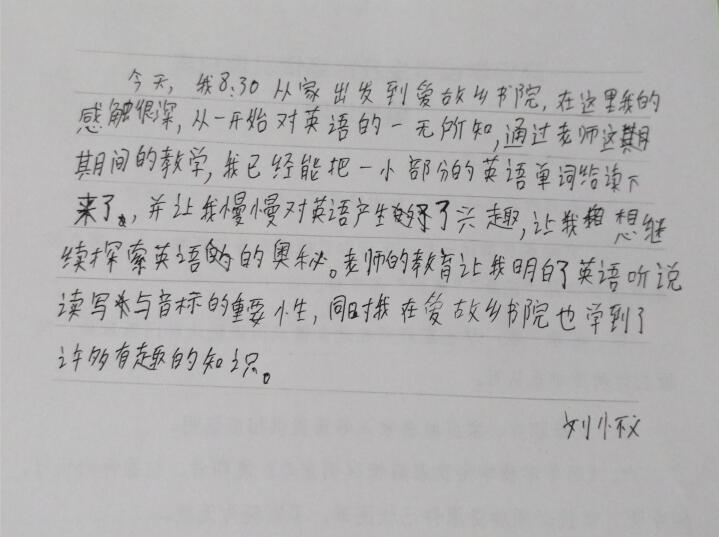 今天,我8:30从家出发到爱故乡书院,在这里我的
感触很深,从一开始对英语的一无所知,通过老师这期
期间的教学,我已经能把一小部分的英语单词给读下
来了,并让我慢慢对英语产生了兴趣,让我想继
续探索英语的奥秘。老师的教育让我明白了英语听说
读写与音标的重要性,同时我在爱故乡书院也学到了
许多有趣的知识。
刘怀